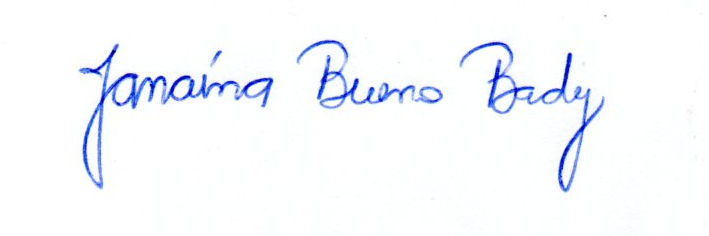 Janaína Bueno Bady